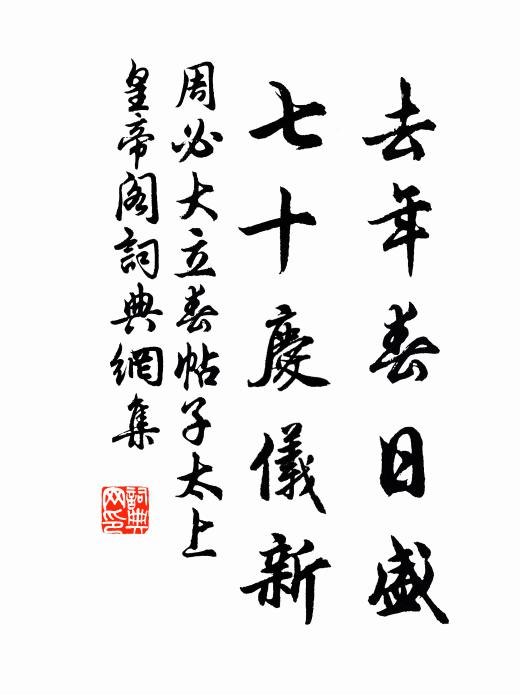 去年春日盛
七十慶儀新
周必大立春帖子太上
皇帝閣詞典網集
詞典网印